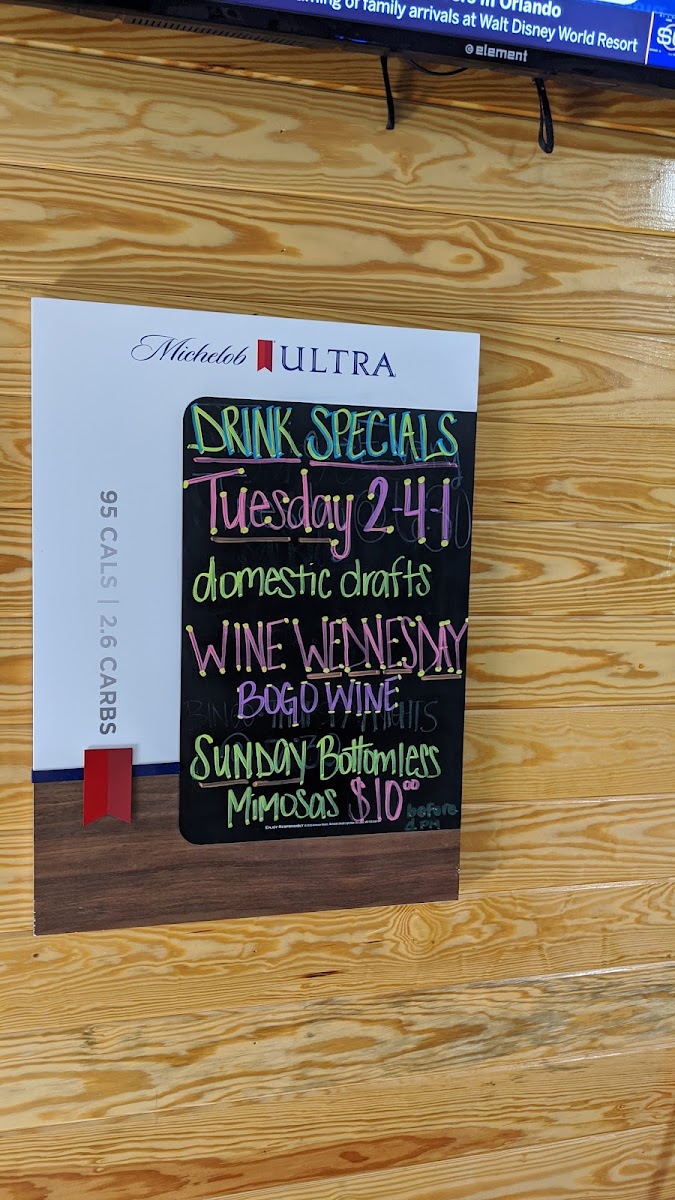 re in Orlando
ing of family arrivals at Walt Disney World Resort
element
Michelob ULTRA
95 CALS | 2.6 CARBS
DRINK SPECIALS
Tuesday 2-4-1
domestic drafts
WINE WEDNESDAY
BOGO WINE
SUNDAY Bottomless
Mimosas $10.00 before
PM